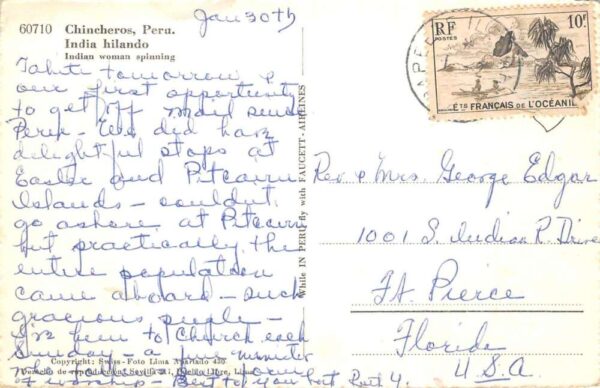 60710 Chincheros, Peru.
India hilando
Indian woman spinning
Jan 30th
Tahiti tomorrow &
our first opportunity
to get off mail since
Peru - Yes did have
delightful stops at
Easter and Pitcairn
Islands - couldn't
go ashore at Pitcairn
but practically the
entire population
came aboard - such
gracious people -
I've been to Church each
Sunday - a fine minister
of worship - Best to you
Copyright: Swiss-Foto Lima Apartado 426
While IN PERU fly with FAUCETT-AIRLINES
RF
POSTES
10F
ETS FRANÇAIS DE L'OCÉANIE
Rev & Mrs. George Edgar
1001 S. Indian R. Drive
Ft. Pierce
Florida
U.S.A.